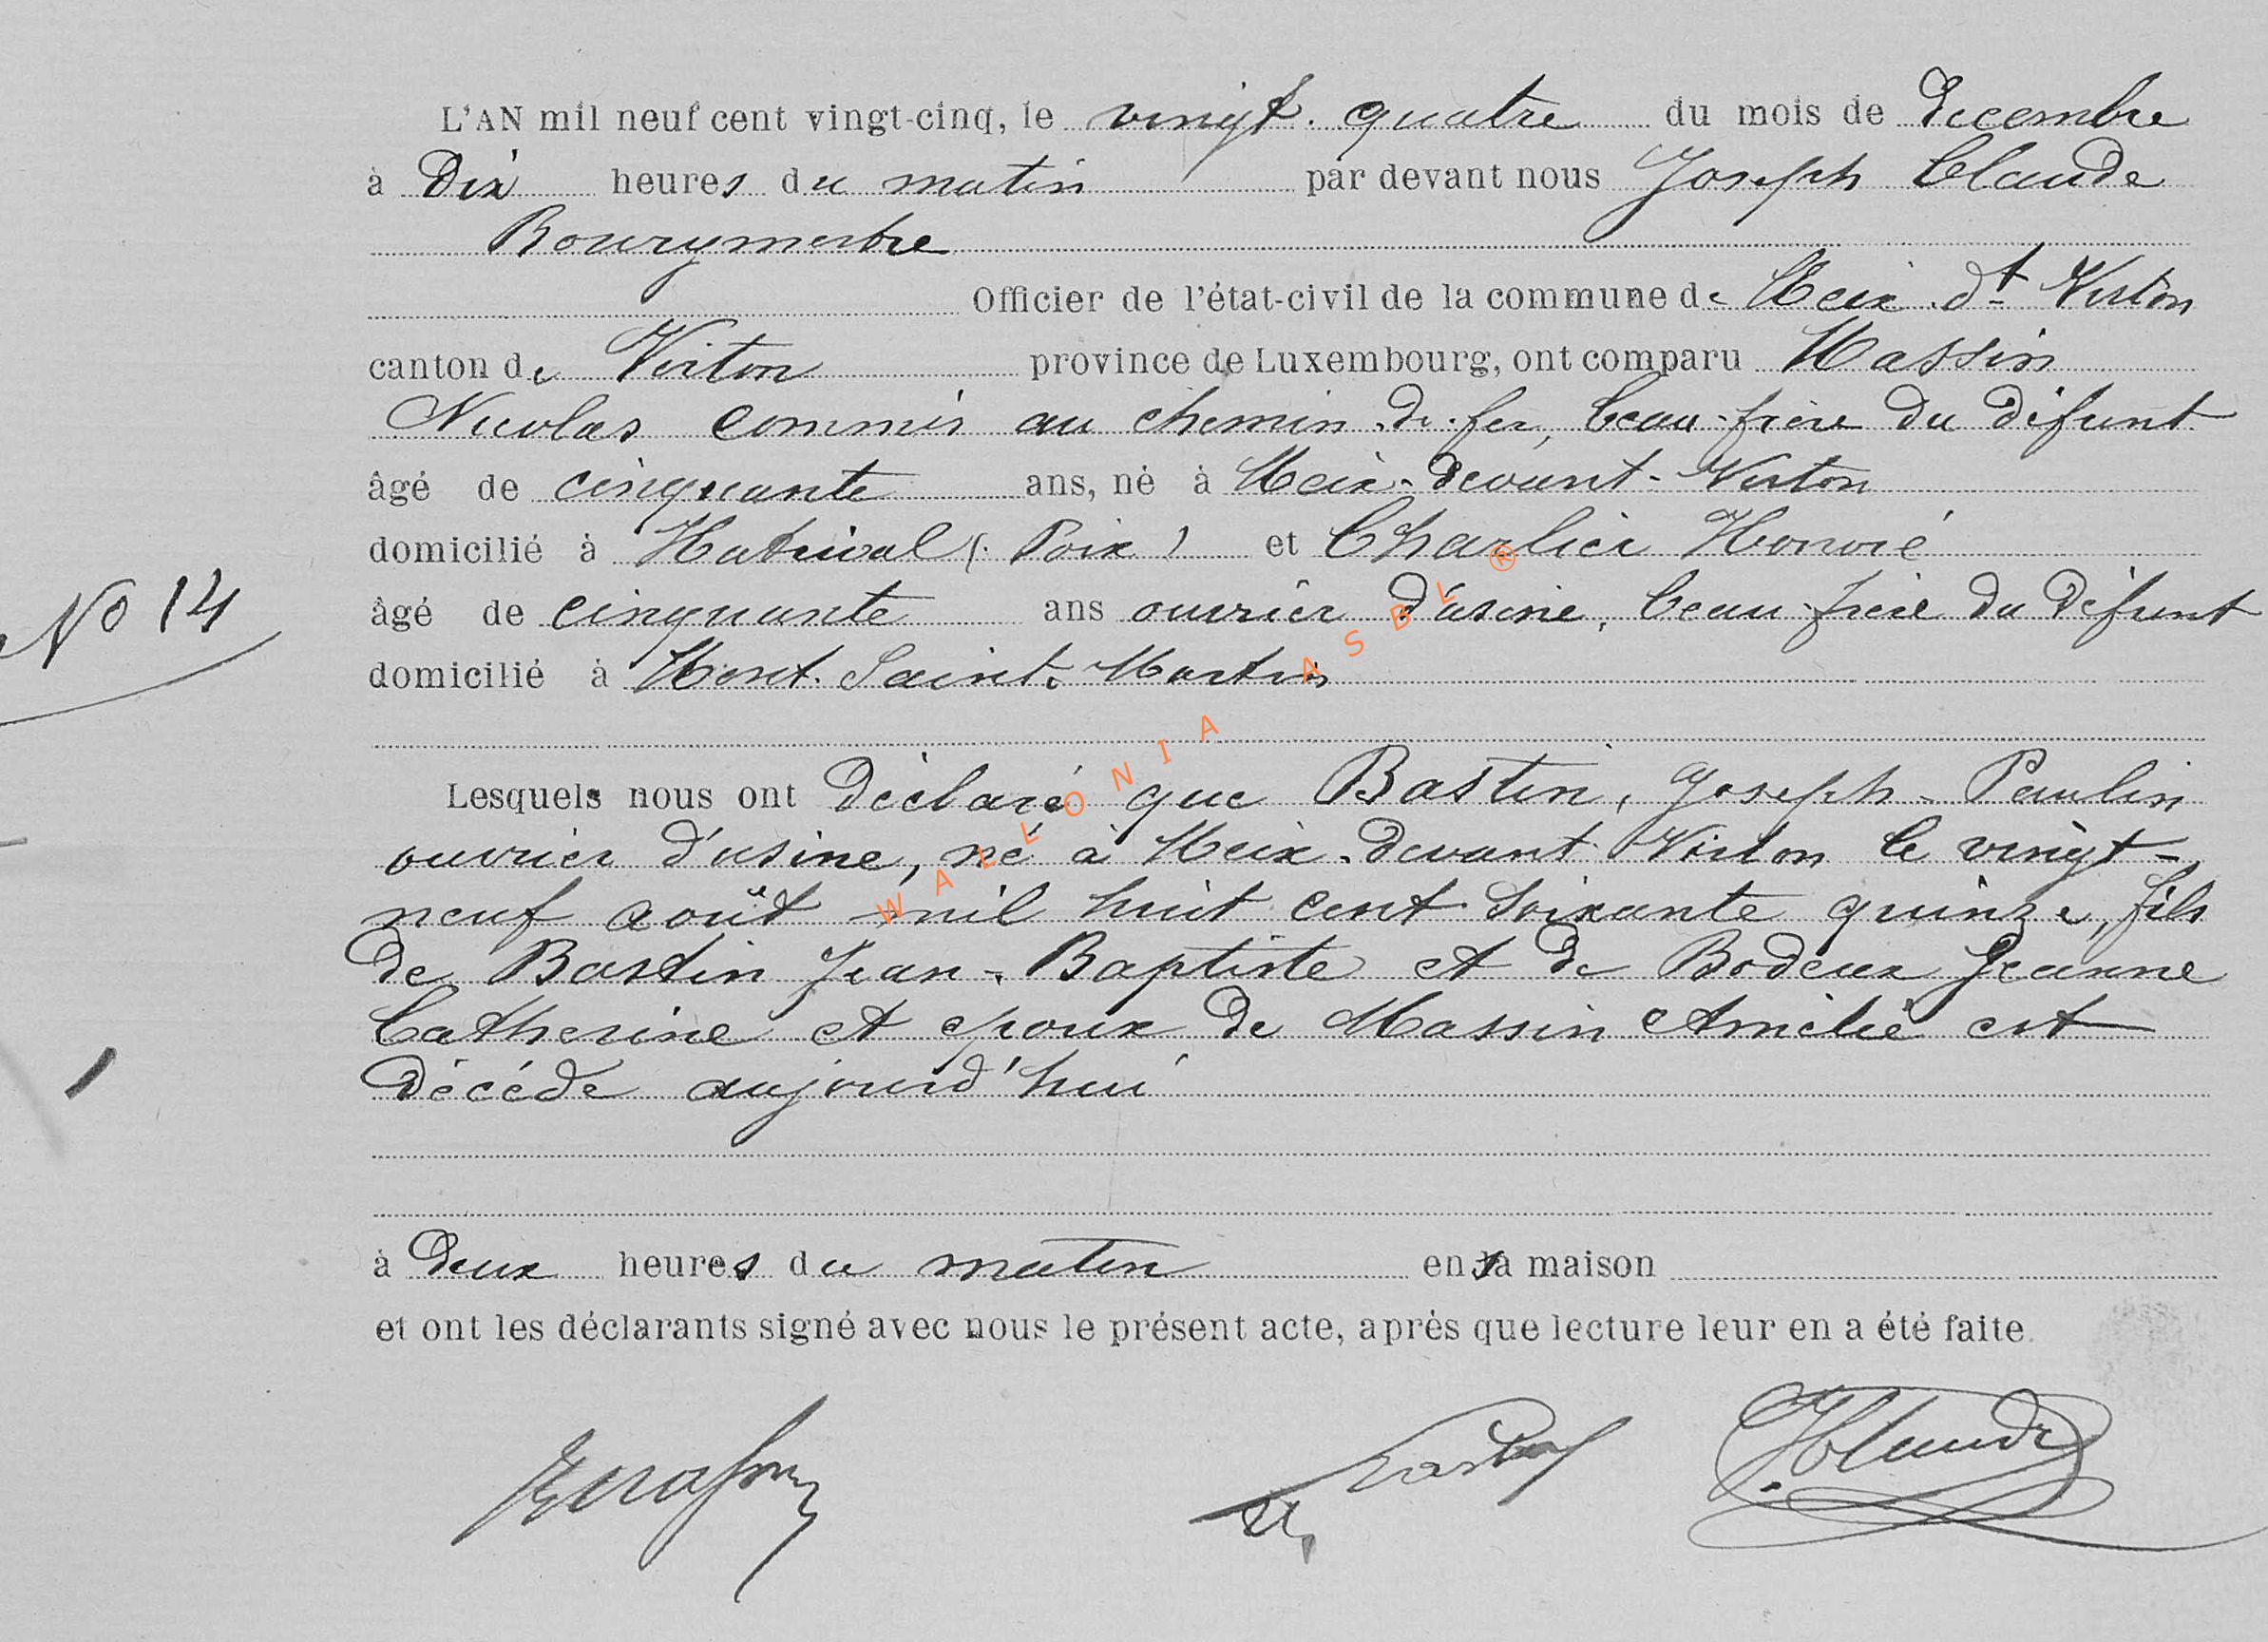 L'AN mil neuf cent vingt-cinq, le vingt-quatre du mois de decembre
à dix heures du matin par devant nous Joseph Claude
Bourgmestre
Officier de l'état-civil de la commune de Meix-dt Virton
canton de Virton province de Luxembourg, ont comparu Massin
Nicolas commis au chemin de fer, beau-frère du défunt
âgé de cinquante ans, né à Meix-devant-Virton
domicilié à Hatrival (Poix) et Charlier Honoré
No 14
âgé de cinquante ans ouvrier d'usine, beau-frère du défunt
domicilié à Mont-Saint-Martin
Lesquels nous ont déclaré que Bastin, Joseph-Paulin
ouvrier d'usine, né à Meix-devant Virton le vingt-
neuf août mil huit cent soixante quinze, fils
de Bastin Jean-Baptiste et de Bodeux Jeanne
Catherine et époux de Massin Amélie est
décédé aujourd'hui
à deux heures du matin en sa maison
et ont les déclarants signé avec nous le présent acte, après que lecture leur en a été faite.
JClaude
WALLONIA ASBL ®